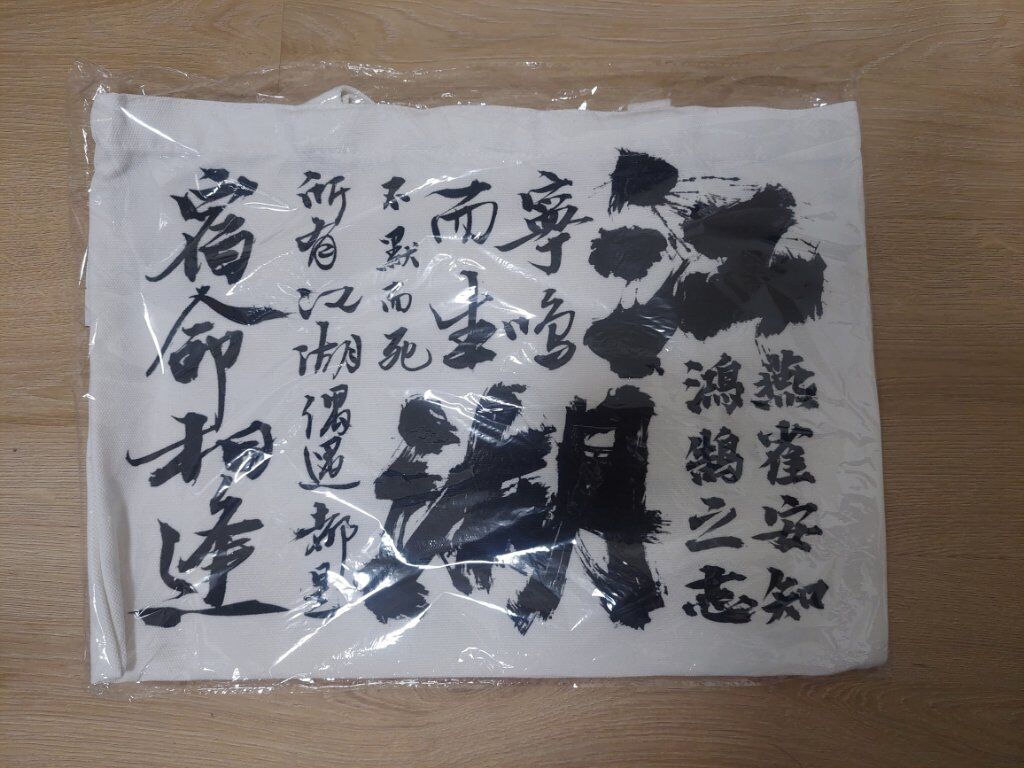 江湖
燕雀安知
鴻鵠之志
寧鳴
而生
不默而死
所有江湖偶遇都是
宿命相逢